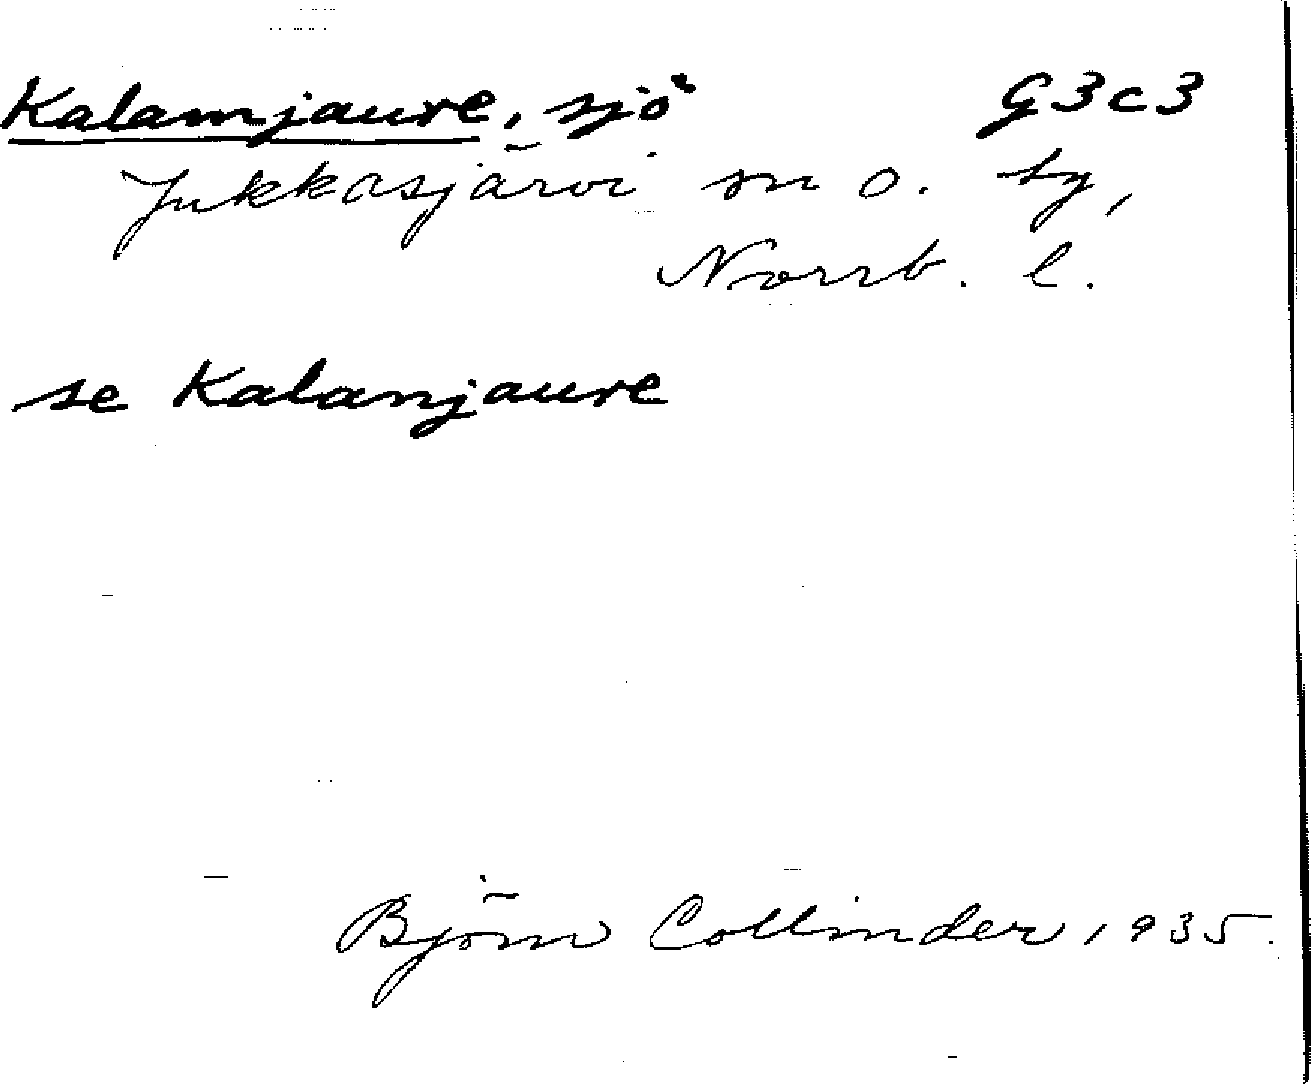 Kalamjaure, sjö G3c3
Jukkasjärvi sn o. tg,
Norrb. l.
se Kalanjaure
Björn Collinder 1935.